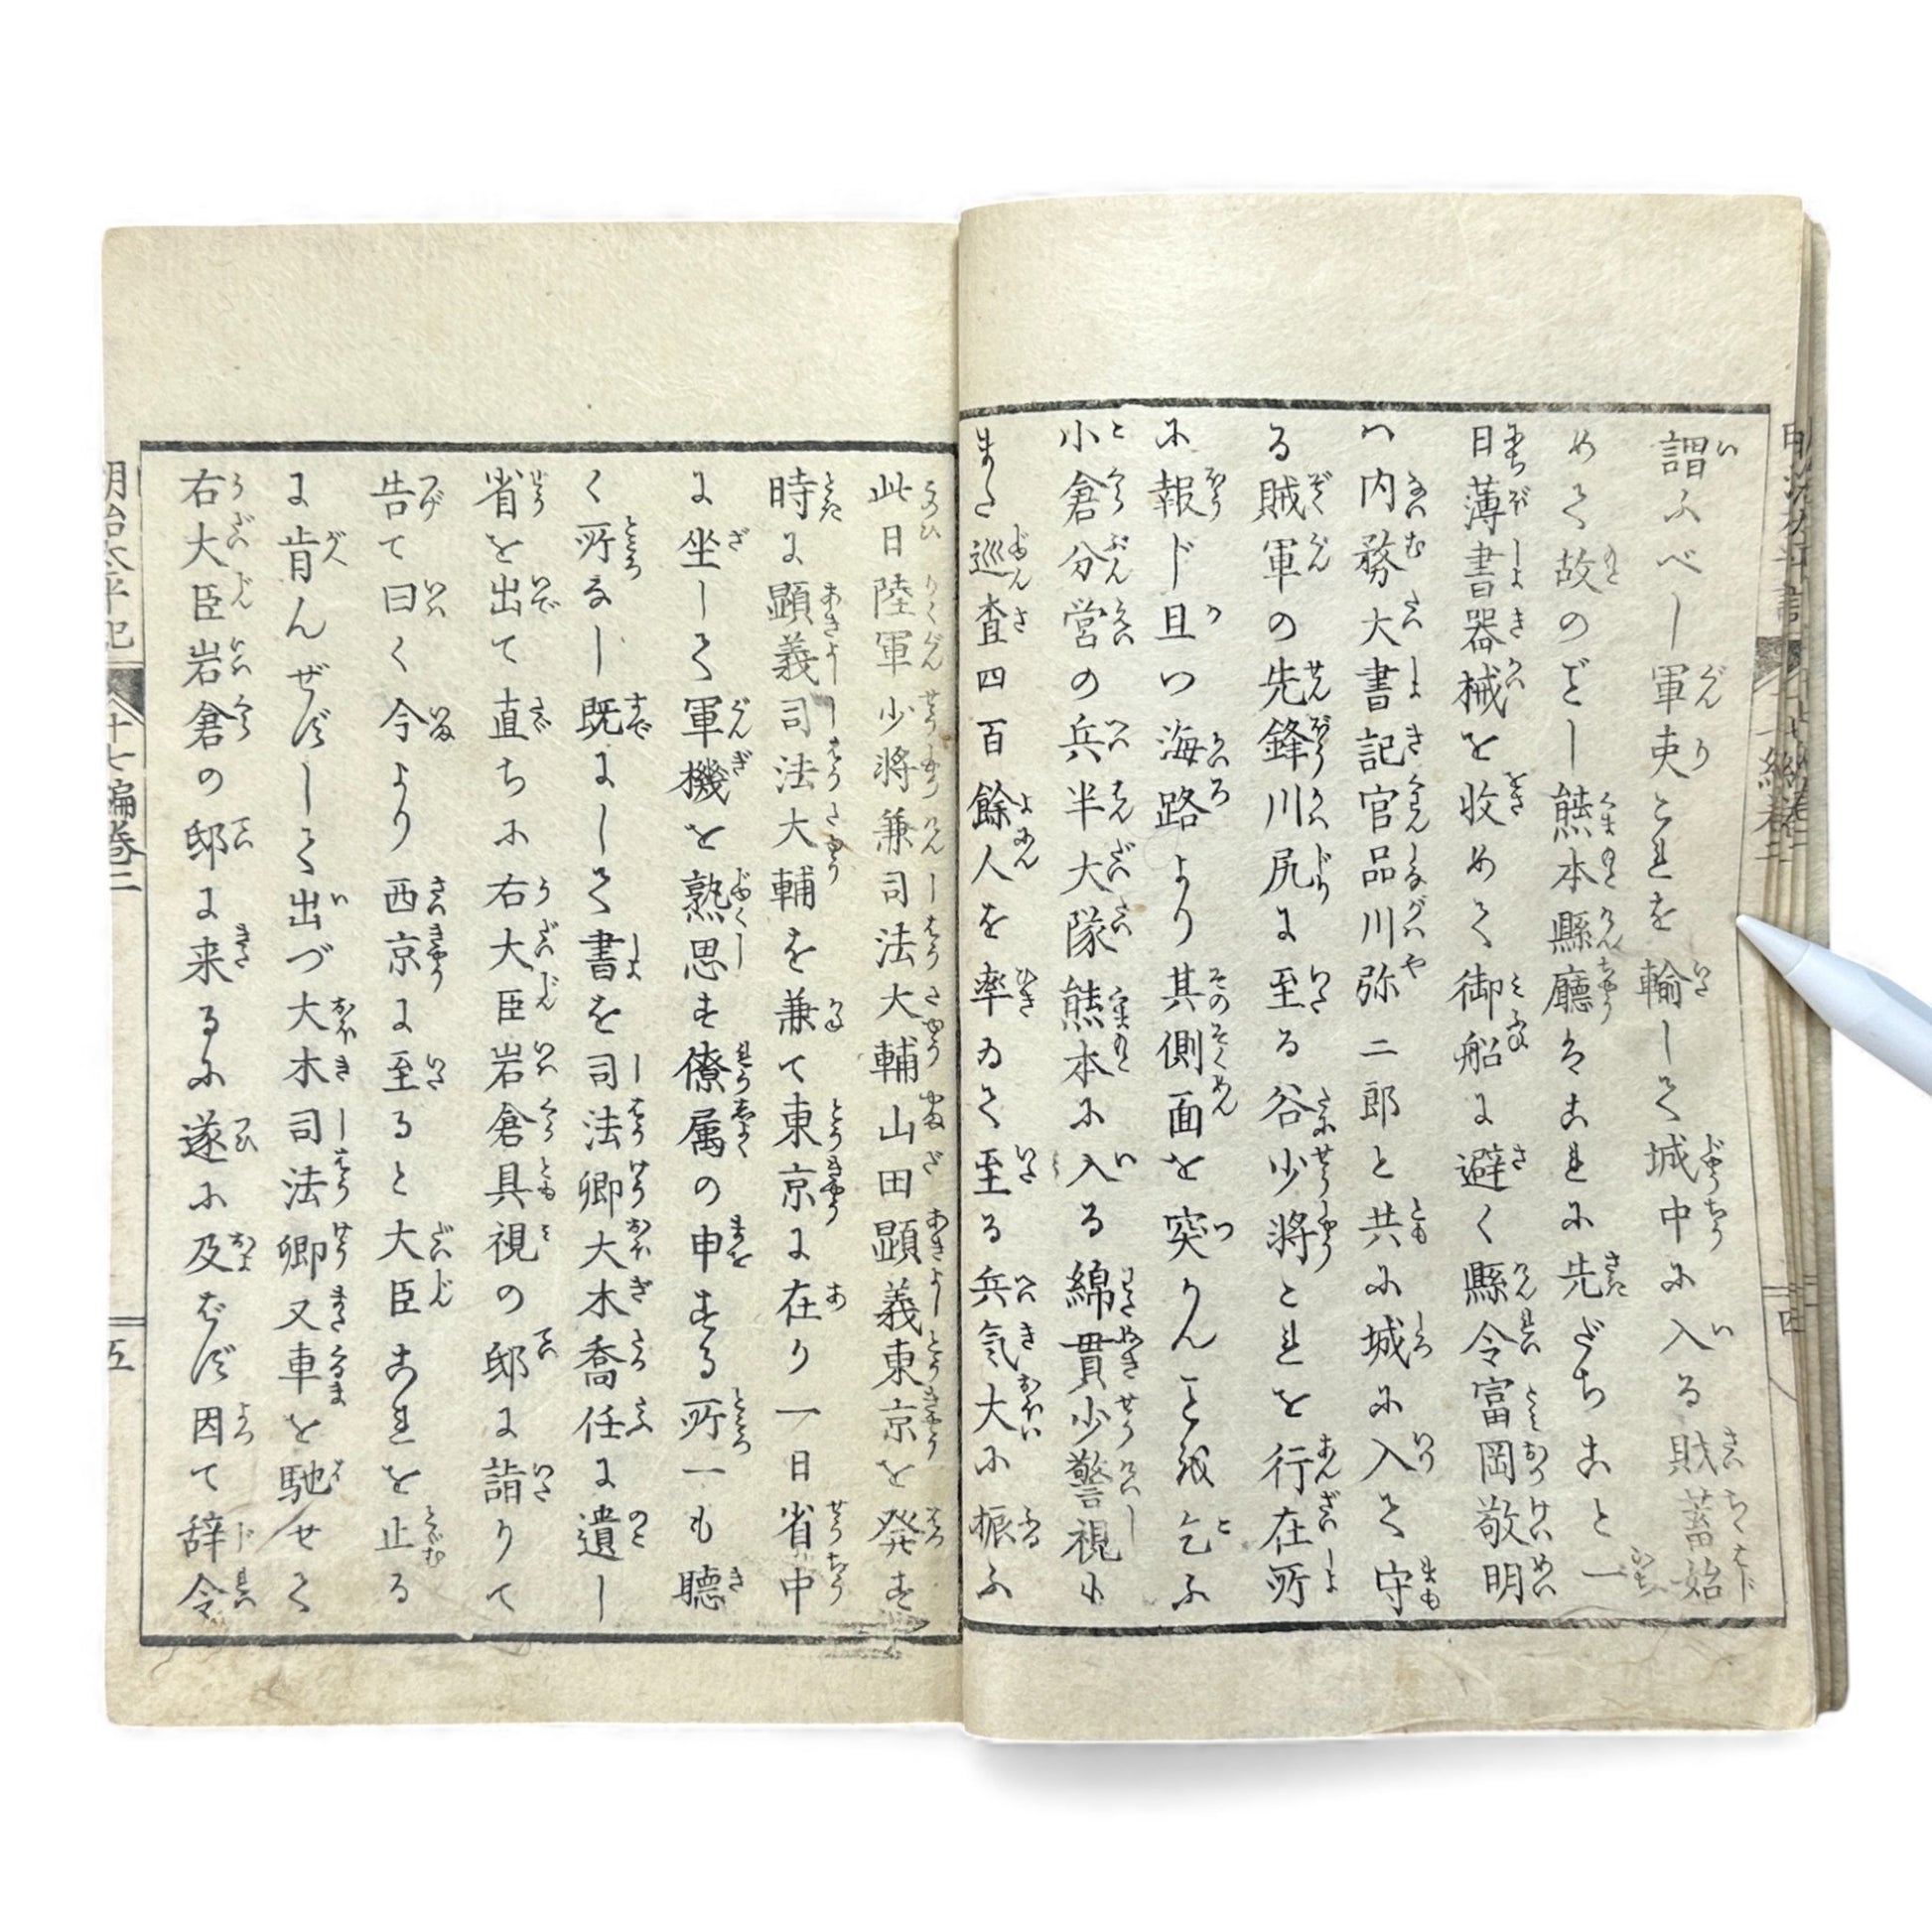 謂ふべし軍吏これを輸して城中に入る財蓄始
めて故のごとし熊本縣廳はこれに先だちこと一
日薄書器械を收めて御船に避く縣令富岡敬明
ハ内務大書記官品川弥二郎と共に城に入て守
る賊軍の先鋒川尻に至る谷少将これを行在所
に報ド且つ海路より其側面を突かんことを乞ふ
小倉分営の兵半大隊熊本に入る綿貫少警視も
また巡査四百餘人を率ゐて至る兵気大に振ふ
此日陸軍少将兼司法大輔山田顕義東京を発す
時に顕義司法大輔を兼て東京に在り一日省中
に坐して軍機を熟思す僚属の申する所一も聴
く所なし既にして書を司法卿大木喬任に遺し
省を出て直ちに右大臣岩倉具視の邸に詣りて
告て曰く今より西京に至ると大臣これを止る
に肯んぜずして出づ大木司法卿又車を馳せて
右大臣岩倉の邸に来るに遂に及ばず因て辞令
明治太平記
十七編巻二
五